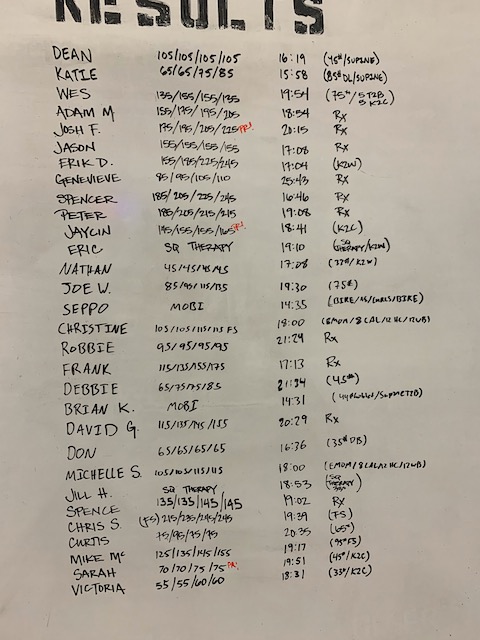 RESULTS
DEAN 105/105/105/105 16:19 (45#/SUPINE)
KATIE 65/65/75/85 15:58 (85# DL/SUPINE)
WES 135/155/155/135 19:54 (75#/5 T2B 5 K2C)
ADAM M 155/175/195/205 18:54 RX
JOSH F. 175/195/205/225 PR! 20:15 RX
JASON 155/155/155/155 17:08 RX
ERIK D. 155/185/225/245 17:04 (K2W)
GENEVIEVE 85/95/105/110 25:43 RX
SPENCER 185/205/225/245 16:46 RX
PETER 185/205/215/215 19:08 RX
JAYCIN 145/155/155/165 18:41 (K2C)
ERIC SQ THERAPY 19:10 (SQ THERAPY/K2W)
NATHAN 45/45/45/45 17:08 (33#/K2W)
JOE W. 85/95/115/135 19:30 (75#)
SEPPO MOBI 14:35
CHRISTINE 105/105/115/115 FS 18:00 (EMOM/8 CAL/12 HC/12WB)
ROBBIE 95/95/95/95 21:29 RX
FRANK 115/135/155/175 17:13 RX
DEBBIE 65/75/75/85 21:34 (45#)
BRIAN K. MOBI 14:31
DAVID G. 115/135/145/155 20:29 RX
DON 65/65/65/65 16:36 (35# DB)
MICHELLE S. 105/105/115/115 18:00 (EMOM/8CAL/12HC/12WB)
JILL H. SQ THERAPY 18:53
SPENCE 135/135/145/145 19:02 RX
CHRIS S. (FS) 215/235/245/245 19:39 (FS)
CURTIS 75/95/75/75 20:35 (65#)
MIKE MC 125/135/145/155 19:17 (95# FS)
SARAH 70/70/75/75 PR! 19:51 (45#/K2C)
VICTORIA 55/55/60/60 18:31 (33#/K2C)